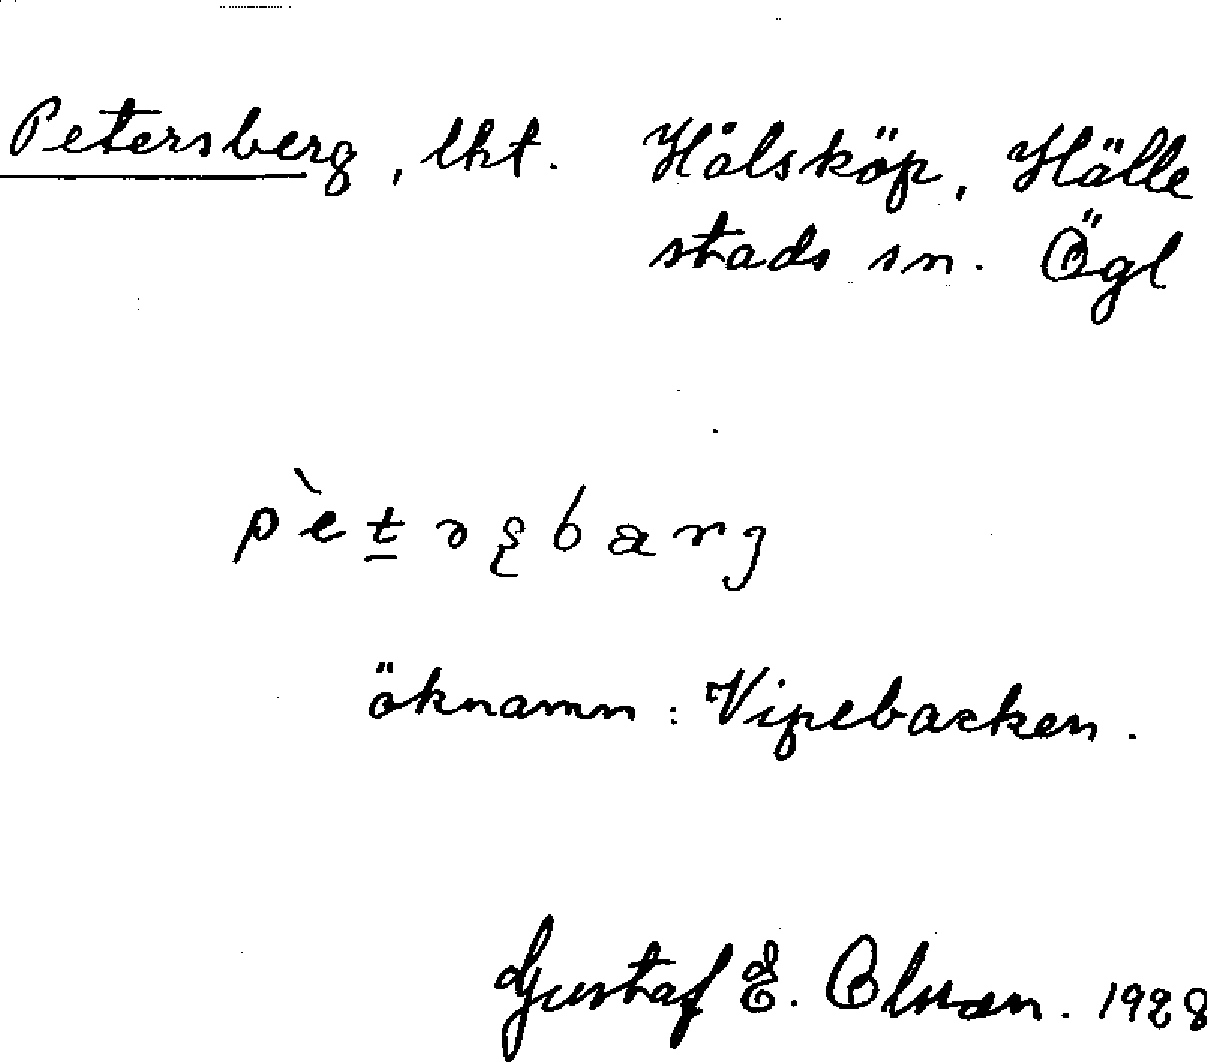 Petersberg, lht. Hålsköp, Hälle
stads sn. Ögl
öknamn: Vipebacken.
Gustaf E. Olsson. 1928